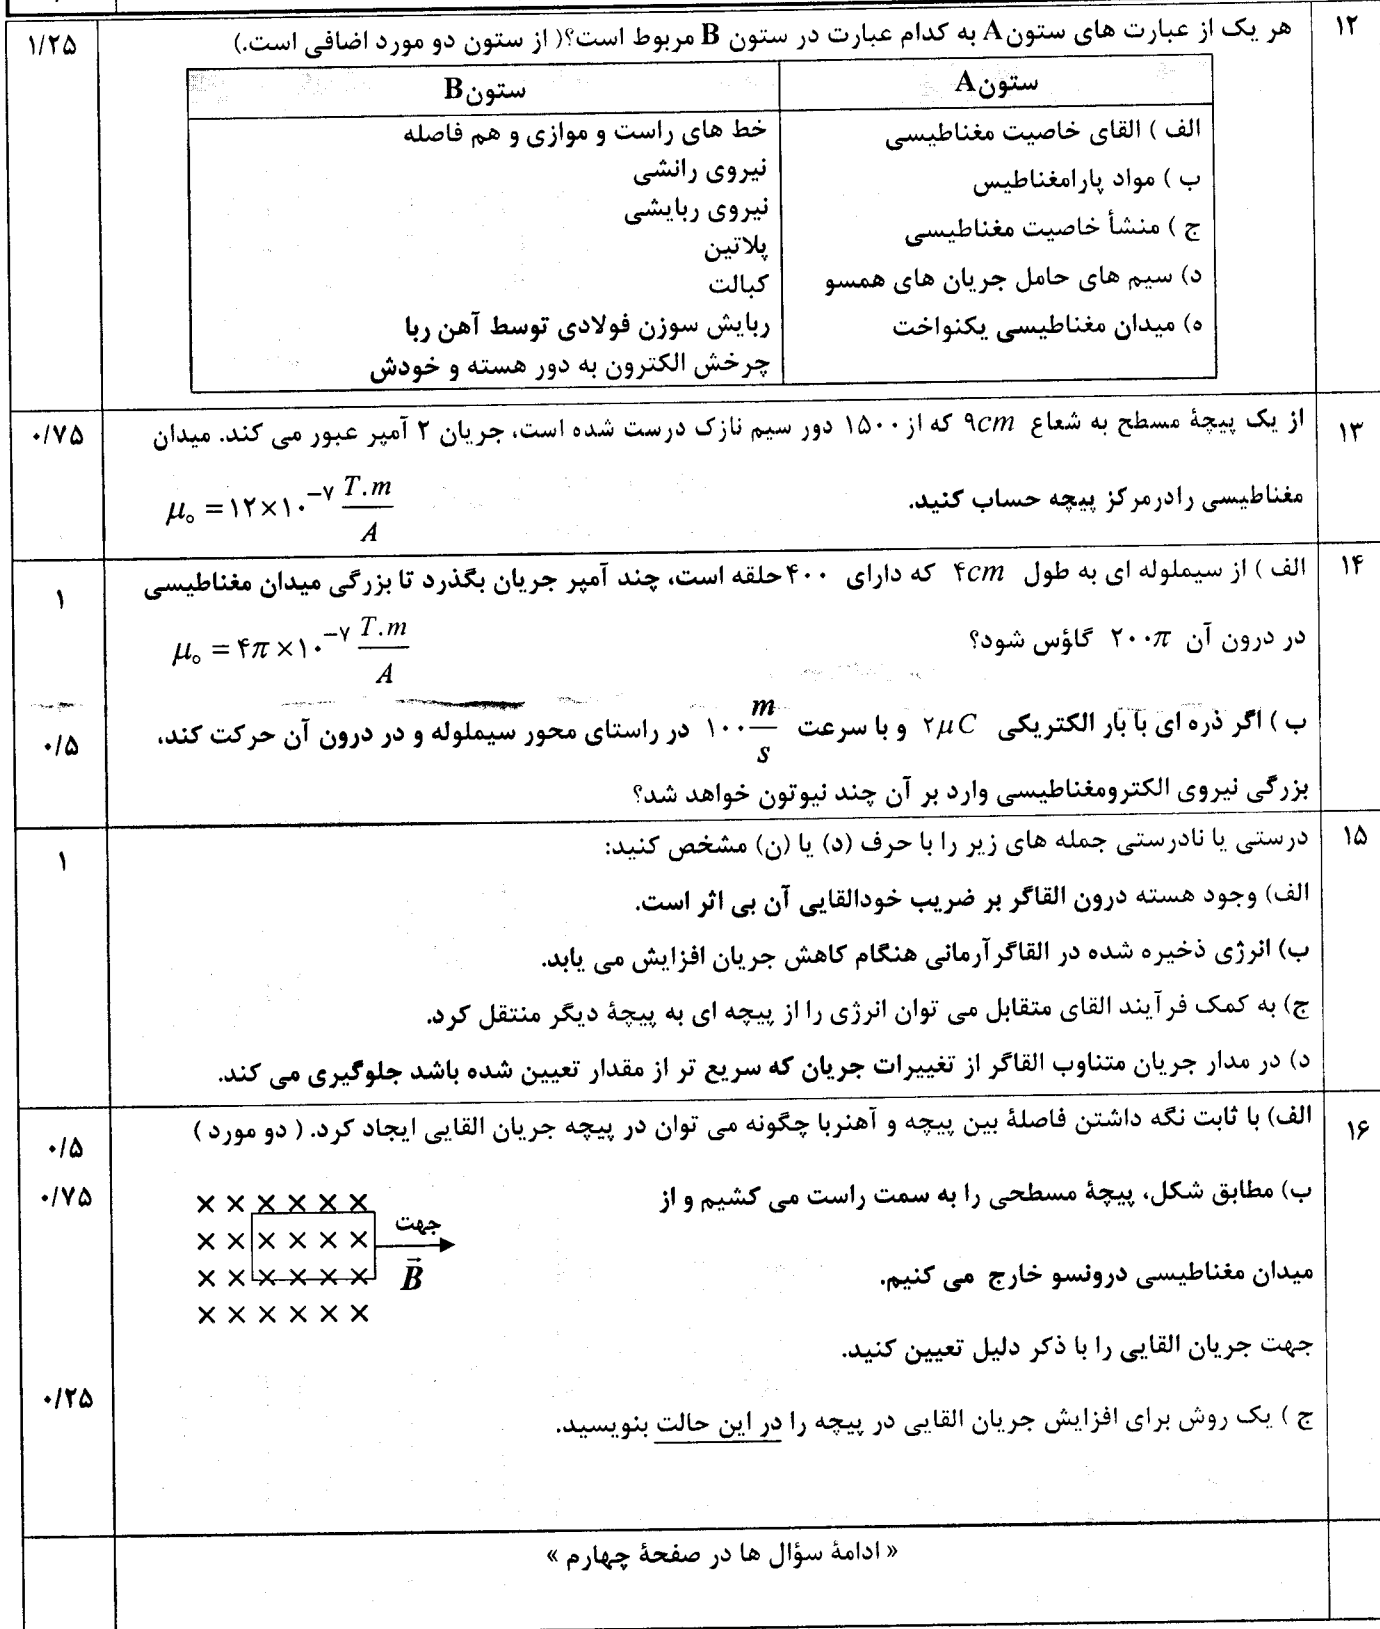 ۱۲ هر یک از عبارت های ستون A به کدام عبارت در ستون B مربوط است؟( از ستون دو مورد اضافی است.) ۱/۲۵
ستون A
ستون B
الف ) القای خاصیت مغناطیسی
ب ) مواد پارامغناطیس
ج ) منشأ خاصیت مغناطیسی
د) سیم های حامل جریان های همسو
ه) میدان مغناطیسی یکنواخت
خط های راست و موازی و هم فاصله
نیروی رانشی
نیروی ربایشی
پلاتین
کبالت
ربایش سوزن فولادی توسط آهن ربا
چرخش الکترون به دور هسته و خودش
۱۳ از یک پیچهٔ مسطح به شعاع ۹cm که از ۱۵۰۰ دور سیم نازک درست شده است، جریان ۲ آمپر عبور می کند. میدان ۰/۷۵
مغناطیسی رادرمرکز پیچه حساب کنید. μ₀ = ۱۲×۱۰⁻⁷ T.m/A
۱۴ الف ) از سیملوله ای به طول ۴cm که دارای ۴۰۰ حلقه است، چند آمپر جریان بگذرد تا بزرگی میدان مغناطیسی ۱
در درون آن ۲۰۰π گاؤس شود؟ μ₀ = ۴π×۱۰⁻⁷ T.m/A
ب ) اگر ذره ای با بار الکتریکی ۲μC و با سرعت ۱۰۰ m/s در راستای محور سیملوله و در درون آن حرکت کند، ۰/۵
بزرگی نیروی الکترومغناطیسی وارد بر آن چند نیوتون خواهد شد؟
۱۵ درستی یا نادرستی جمله های زیر را با حرف (د) یا (ن) مشخص کنید: ۱
الف) وجود هسته درون القاگر بر ضریب خودالقایی آن بی اثر است.
ب) انرژی ذخیره شده در القاگر آرمانی هنگام کاهش جریان افزایش می یابد.
ج) به کمک فرآیند القای متقابل می توان انرژی را از پیچه ای به پیچهٔ دیگر منتقل کرد.
د) در مدار جریان متناوب القاگر از تغییرات جریان که سریع تر از مقدار تعیین شده باشد جلوگیری می کند.
۱۶ الف) با ثابت نگه داشتن فاصلهٔ بین پیچه و آهنربا چگونه می توان در پیچه جریان القایی ایجاد کرد. ( دو مورد ) ۰/۵
ب) مطابق شکل، پیچهٔ مسطحی را به سمت راست می کشیم و از ۰/۷۵
میدان مغناطیسی درونسو خارج می کنیم.
جهت جریان القایی را با ذکر دلیل تعیین کنید.
× × × × × ×
× × × × × × جهت
× × × × × × B
× × × × × ×
ج ) یک روش برای افزایش جریان القایی در پیچه را در این حالت بنویسید. ۰/۲۵
« ادامهٔ سؤال ها در صفحهٔ چهارم »